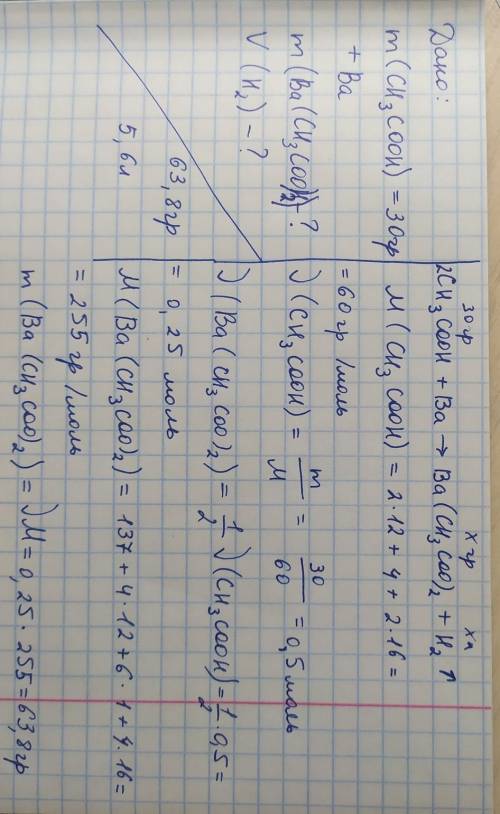 Дано:
m (CH₃COOH) = 30гр
+ Ba
m (Ba(CH₃COO)₂) - ?
V (H₂) - ?
63,8гр
5,6л
30гр xгр xл
2CH₃COOH + Ba → Ba(CH₃COO)₂ + H₂↑
M (CH₃COOH) = 2·12 + 4 + 2·16 =
= 60гр/моль
ν (CH₃COOH) = m/M = 30/60 = 0,5моль
ν (Ba(CH₃COO)₂) = 1/2 ν (CH₃COOH) = 1/2 · 0,5 =
= 0,25 моль
M (Ba(CH₃COO)₂) = 137 + 4·12 + 6·1 + 4·16 =
= 255 гр/моль
m (Ba(CH₃COO)₂) = νM = 0,25·255 = 63,8гр